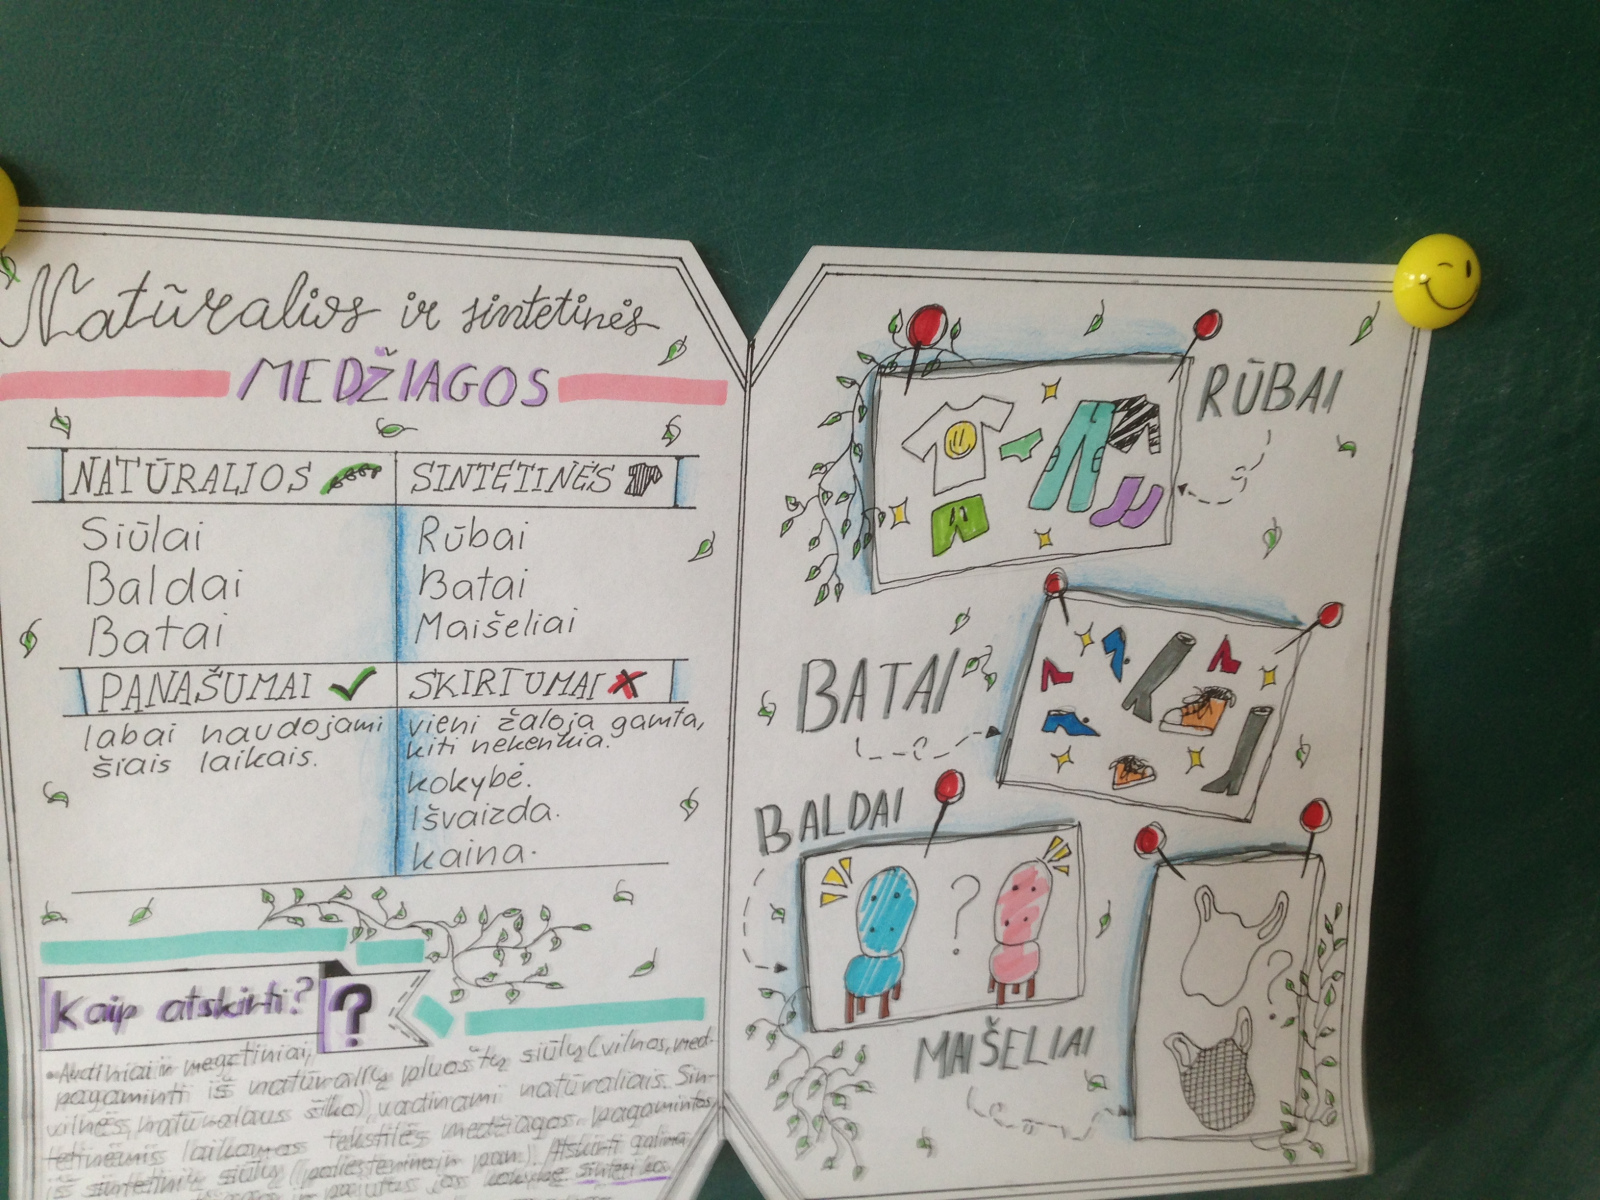 Natūralios ir sintetinės
MEDŽIAGOS
NATŪRALIOS
SINTETINĖS
Siūlai
Baldai
Batai
Rūbai
Batai
Maišeliai
PANAŠUMAI
SKIRTUMAI
labai naudojami
šiais laikais.
vieni žaloja gamta,
kiti nekenkia.
kokybė.
Išvaizda.
kaina.
Kaip atskirti?
?
Audiniai ir megztiniai,
pagaminti iš natūralių pluoštų siūlų (vilnos, med-
vilnės, natūralaus šilko), vadinami natūraliais. Sin-
tetinėmis laikomos tekstilės medžiagos, pagamintos
iš sintetinių siūlų (poliesterinio ir pan.). Atskirti galima
RŪBAI
BATAI
BALDAI
?
MAIŠELIAI
?